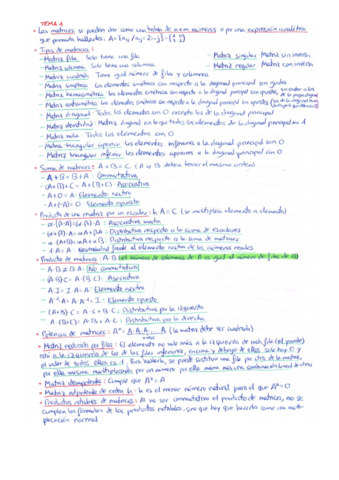 TEMA 1
• Las matrices se pueden dar como una tabla de n×m números o por una expresión
que permita hallarlos: A=
• Tipos de matrices:
- Matriz fila: Solo tiene una fila - Matriz singular: Matriz sin inversa
- Matriz columna: Solo tiene una columna - Matriz regular: Matriz con inversa
- Matriz cuadrada: Tiene igual número de filas y columnas
- Matriz simétrica: Los elementos simétricos con respecto a la diagonal principal son iguales
- Los elementos simétricos con respecto a la diagonal principal son
- Matriz antisimétrica: Los elementos simétricos con respecto a la diagonal principal son opuestos
- Matriz diagonal: Todos los elementos son 0 excepto los de la diagonal principal
- Matriz identidad: Matriz diagonal en la que todos los elementos de la diagonal principal son 1
- Matriz nula: Todos los elementos son 0
- Matriz triangular superior: Los elementos inferiores a la diagonal principal son 0
- Matriz triangular inferior: Los elementos superiores a la diagonal principal son 0
• Suma de matrices: A+B=C (A y B deben tener el mismo orden)
- A+B=B+A: Conmutativa
- (A+B)+C=A+(B+C): Asociativa
- A+0=A: Elemento neutro
- A+(-A)=0: Elemento opuesto
• Producto de una matriz por un escalar: k·A=C (se multiplica elemento a elemento)
- Asociativa mixta
- Distributiva respecto a la suma de escalares
- α·(A+B)=αA+αB: Distributiva respecto a la suma de matrices
- 1·A=A: elemento neutro de los números reales
• Producto de matrices: A·B el número de columnas de A es igual al número de filas de B
- A·B≠B·A: No conmutativa
- (A·B)·C=A·(B·C): Asociativa
- A·I=I·A=A: Elemento neutro
- Elemento opuesto
- (A+B)·C=A·C+B·C: Distributiva por la izquierda
- A·(B+C)=A·B+A·C: Distributiva por la derecha
• Potencia de matrices: Aⁿ=A·A·A... A (la matriz debe ser cuadrada)
n veces
• por filas: El elemento no nulo más a la izquierda de cada fila
está a la izquierda de los de las filas inferiores, encima y debajo de ellos solo hay 0 y
el valor de todos ellos es 1. Para hallarla, se puede sustituir una fila por otra de la matriz,
por ella misma multiplicada por un número o por ella misma más una combinación lineal de otras
• Matriz idempotente: Cumple que A²=A
• Matriz nilpotente de orden k: k es el menor número natural para el que Aᵏ=0
• Productos notables de matrices: Al no ser conmutativo el producto de matrices, no se
cumplen las fórmulas de los productos notables, sino que hay que hacerlos como una
normal